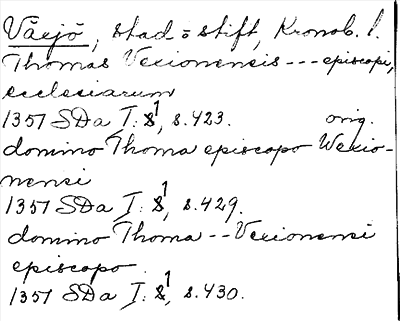 Växjö, stad o stift, Kronob. l.
Thomas Vexionensis --- episcopi,
ecclesiarum
1351 SDa I: 1, s. 423. orig.
domino Thoma episcopo Wexio-
nensi
1351 SDa I: 1, s. 429.
domino Thoma -- Vexionensi
episcopo.
1351 SDa I: 1, s. 430.